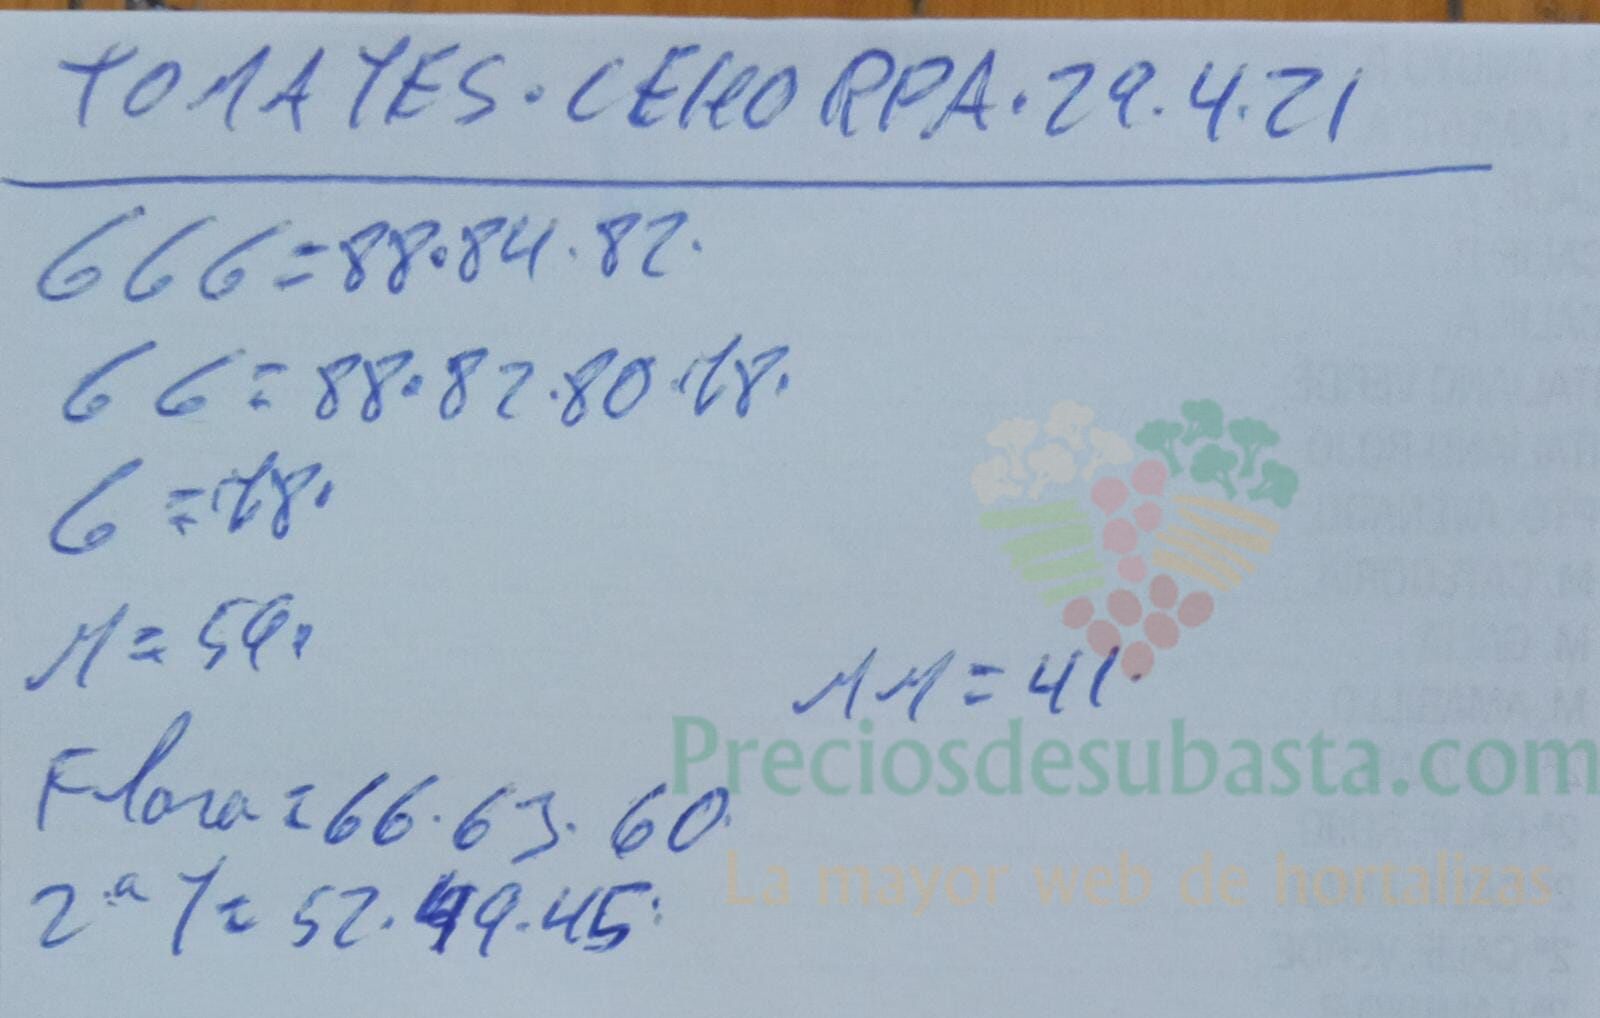 TOMATES·CEHORPA·29.4.21
666=88·84·82·
66=88·82·80·78·
6=78·
M=59·
MM=41·
Flora=66·63·60·
2ª T=52·49·45·
Preciosdesubasta.com
La mayor web de hortalizas